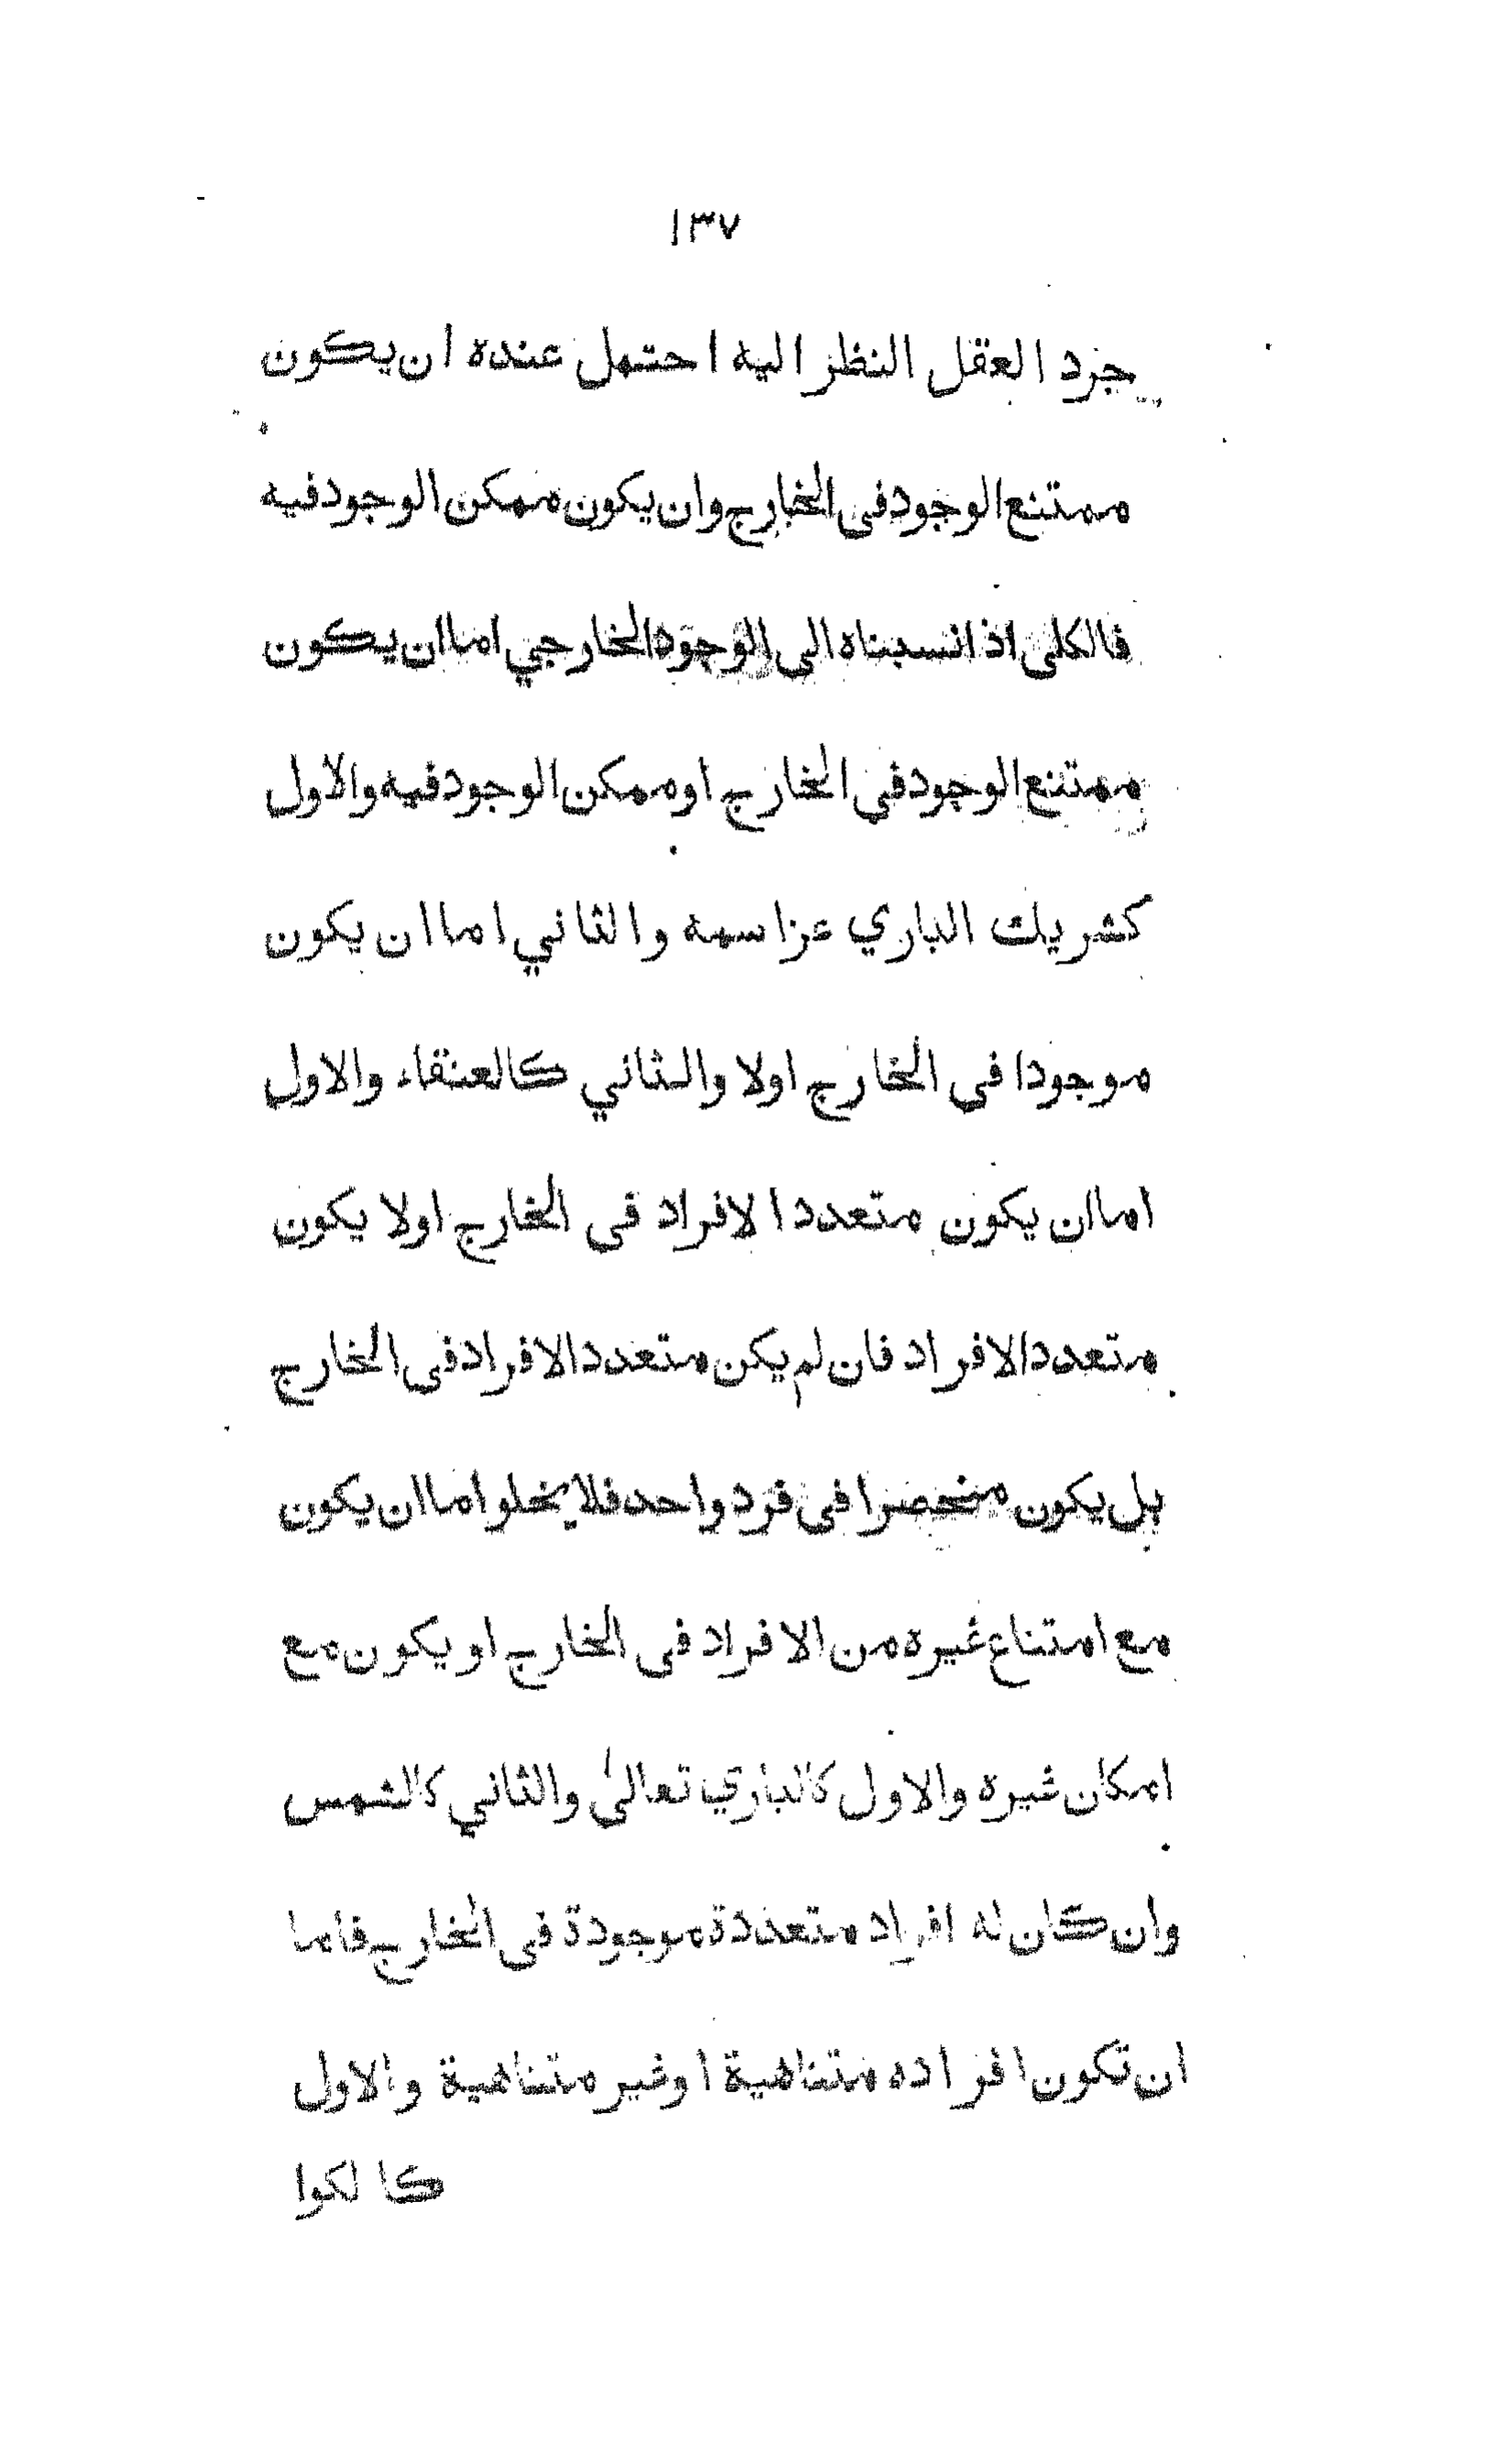 ١٣٧
جرد العقل النظر اليه احتمل عنده ان يكون
ممتنع الوجود فى الخارج وان يكون ممكن الوجود فيه
فالكلى اذا نسبناه الى الوجود الخارجي اما ان يكون
ممتنع الوجود في الخارج او ممكن الوجود فيه والاول
كشريك الباري عز اسمه والثاني اما ان يكون
موجودا في الخارج اولا والثاني كالعنقاء والاول
اما ان يكون متعدد الافراد فى الخارج اولا يكون
متعدد الافراد فان لم يكن متعدد الافراد فى الخارج
بل يكون منحصرا فى فرد واحد فلا يخلو اما ان يكون
مع امتناع غيره من الافراد فى الخارج او يكون مع
امكان غيره والاول كالباري تعالىٰ والثاني كالشمس
وان كان له افراد متعددة موجودة فى الخارج فاما
ان تكون افراده متناهية اوغير متناهية والاول
كالكوا